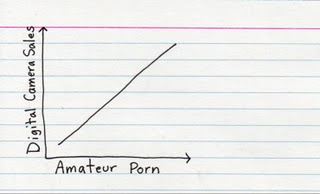 Digital Camera Sales
Amateur Porn